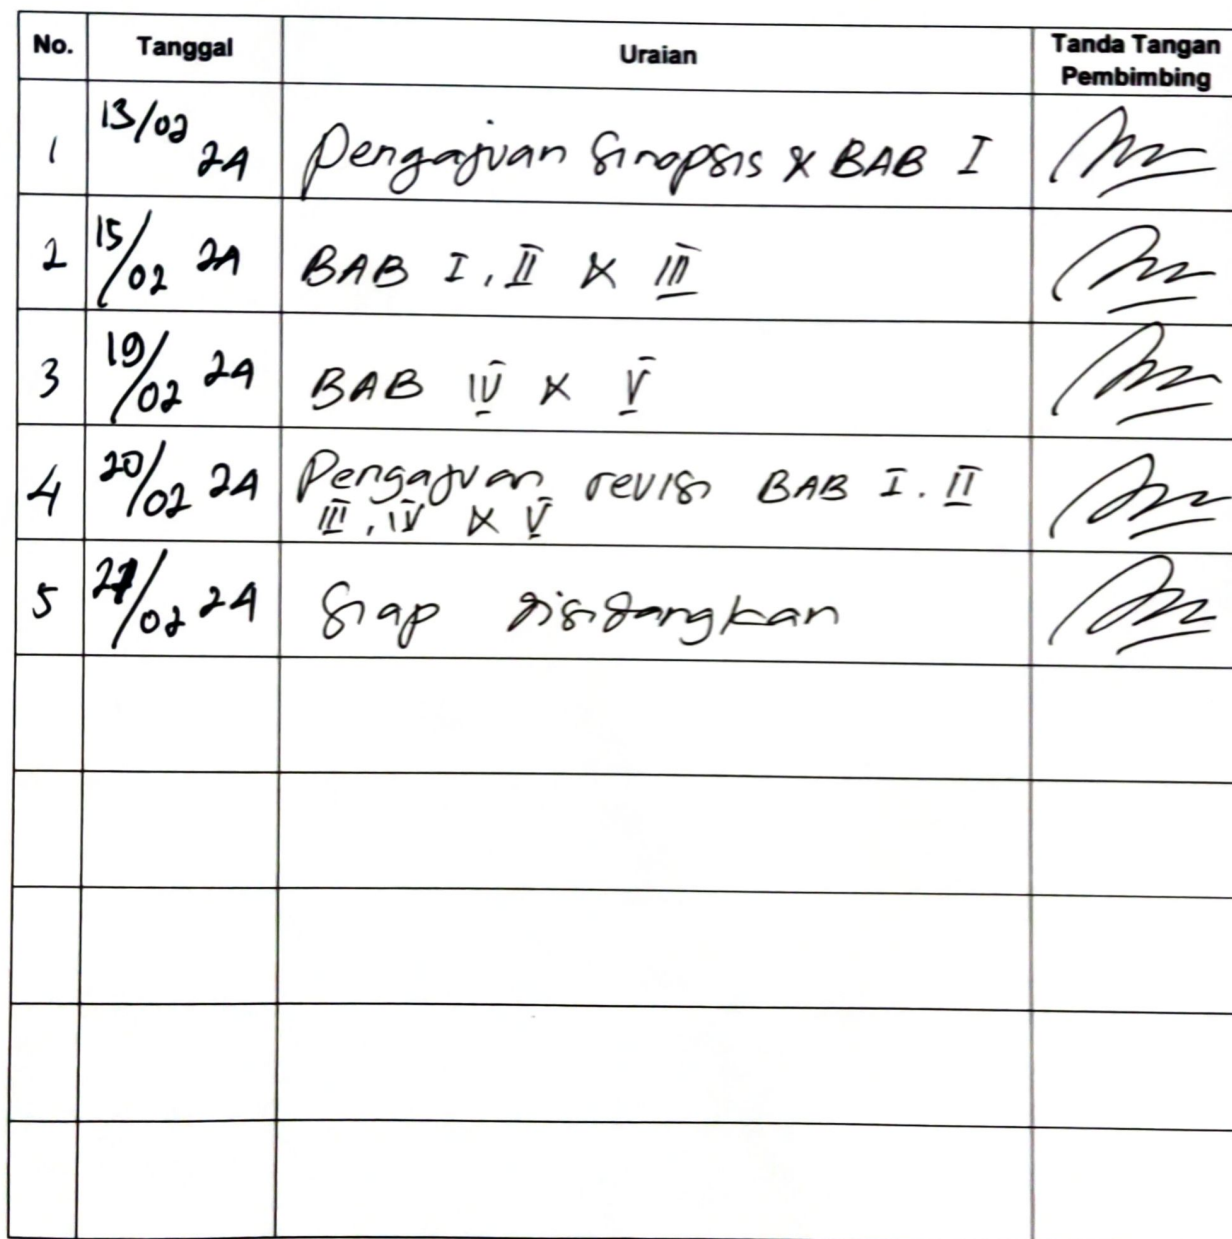 No. Tanggal Uraian Tanda Tangan
Pembimbing
1 13/02 24 Pengajuan Sinopsis & BAB I
2 15/02 24 BAB I, II & III
3 19/02 24 BAB IV & V
4 20/02 24 Pengajuan revisi BAB I. II
III, IV & V
5 /02 24 Siap disidangkan